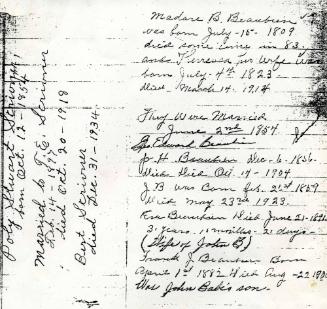 Madore B. Beaubien
was born July-15-1809
died some time in 83.
and Theresa his Wife Was
born July-4th 1823
died March 14. 1914
They Were Married
June 2nd 1854.
Edward Beaubien
J. H. Beaubien Dec-6-1856.
Died Oct 14-1904
J B was Born 21st 1859
Died May 23rd 1923.
Beaubien Died June 21-
3. years. 11 months. 21 days
(Wife of John B)
Frank J. Beaubien Born
April 1st 1882 Died Aug-22
Was John Babe's son.
Stuart Scrivner.
born Oct. 12-1854
Married to T. E. Scrivner
Feb. 14-
died Oct. 20-1918
Bert Scrivner
died Dec. 31-1934.